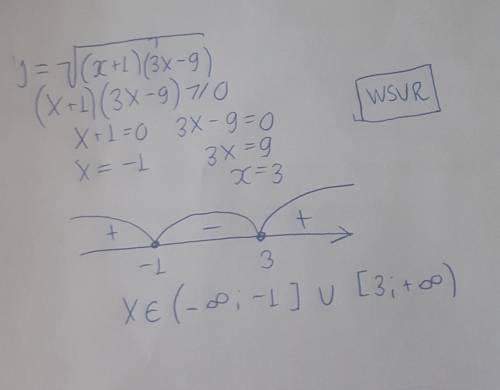 y = √(x+1)(3x-9)
(x+1)(3x-9) ⩾ 0
WSVR
x+1=0 3x-9=0
x = -1 3x = 9
x = 3
+ - +
-1 3
x ∈ (-∞; -1] ∪ [3; +∞)